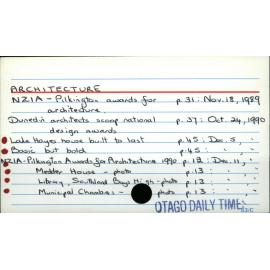 ARCHITECTURE
NZIA - Pilkington awards for p.31: Nov.18, 1989
architecture.
Dunedin architects scoop national p.37: Oct.24, 1990
design awards
Lake Hayes house built to last p.45: Dec.5, "
Basic but bold p.45: " "
NZIA-Pilkington Awards for Architecture 1990 p.12: Dec.11, "
" Medder House - photo p.13 " "
" Library, Southland Boys High - photo p.13 " "
" Municipal Chambers - photo p.13 " "
OTAGO DAILY TIMES